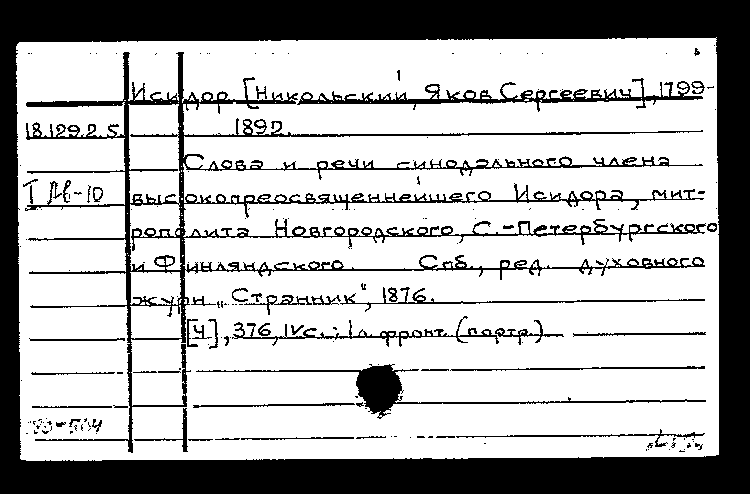 Исидор [Никольский, Яков Сергеевич], 1799-
18.129.2.5. 1892.
Слова и речи синодального члена
I Дв-10 высокопреосвященнейшего Исидора, мит-
рополита Новгородского, С.-Петербургского
и Финляндского. Спб., ред. духовного
журн „Странник", 1876.
[4], 376, IV с.; 1 л фронт. (портр.)
80-504